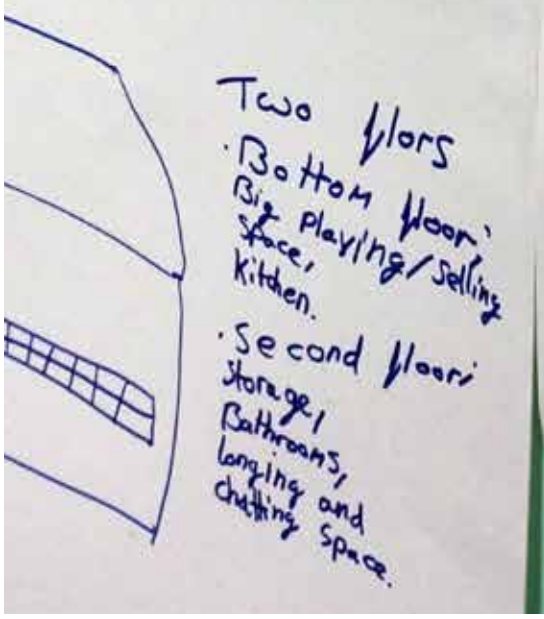 Two flors
· Bottom floor;
Big Playing/selling
Space,
Kitchen.
· Second floor;
Storage,
Bathrooms,
longing and
chatting Space.